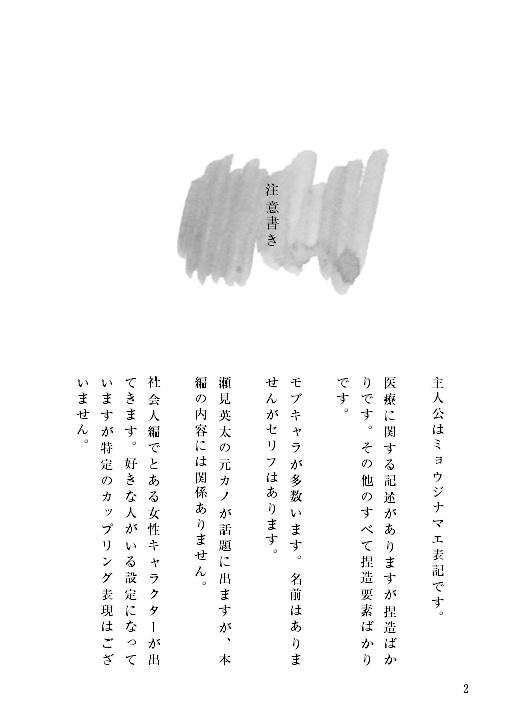 注意書き
主人公はミョウジナマエ表記です。
医療に関する記述がありますが捏造ばか
りです。その他のすべて捏造要素ばかり
です。
モブキャラが多数います。名前はありま
せんがセリフはあります。
瀬見英太の元カノが話題に出ますが、本
編の内容には関係ありません。
社会人編でとある女性キャラクターが出
てきます。好きな人がいる設定になって
いますが特定のカップリング表現はござ
いません。
2